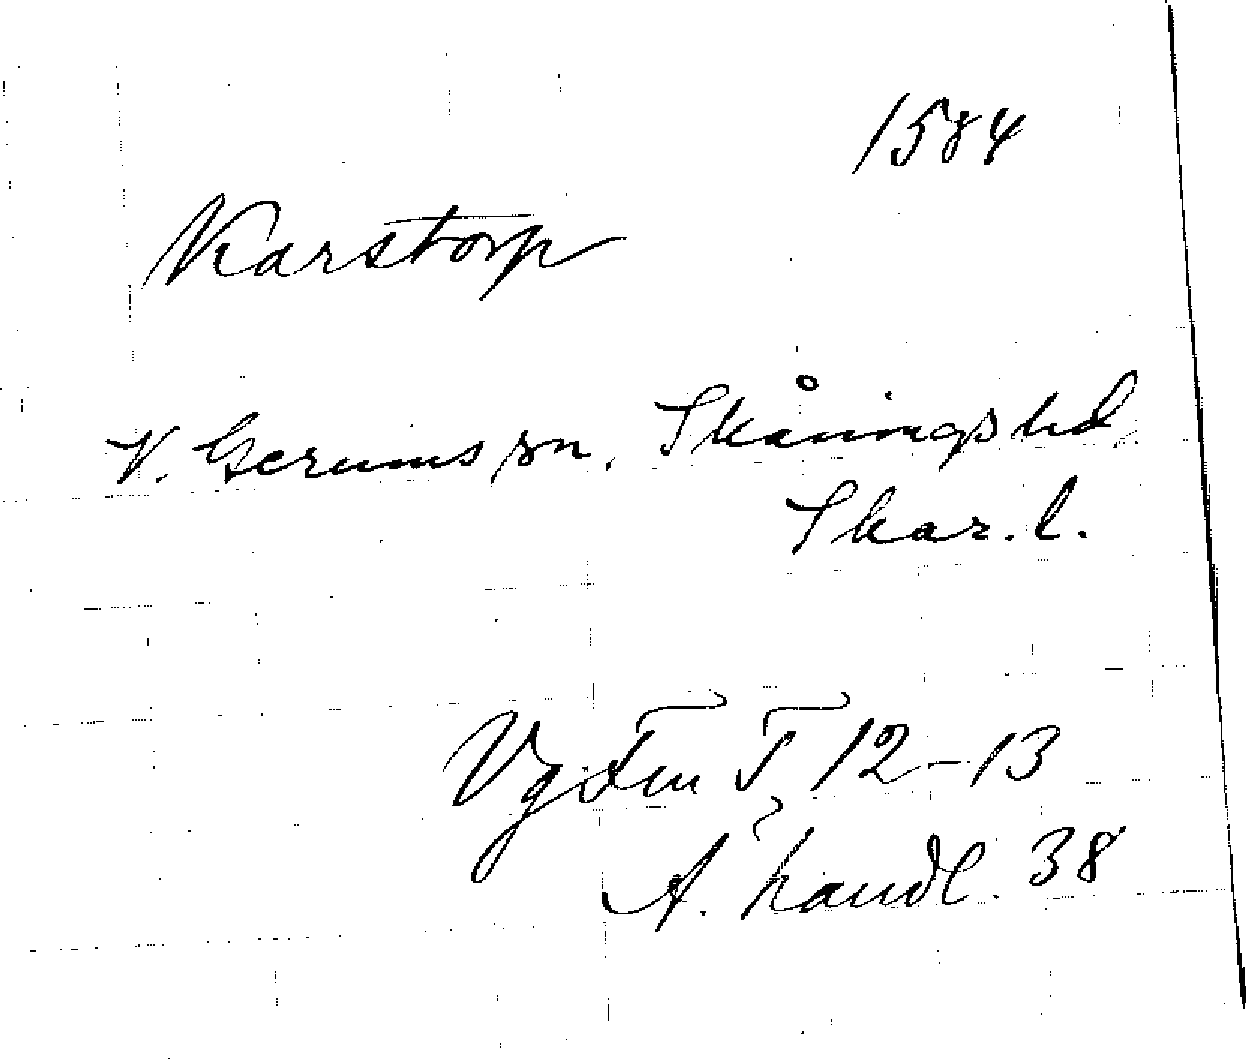 1584
Karstorp
V. Gerums sn. Skånings hd
Skar. l.
Vg Fin T, 12-13
A. handl. 38